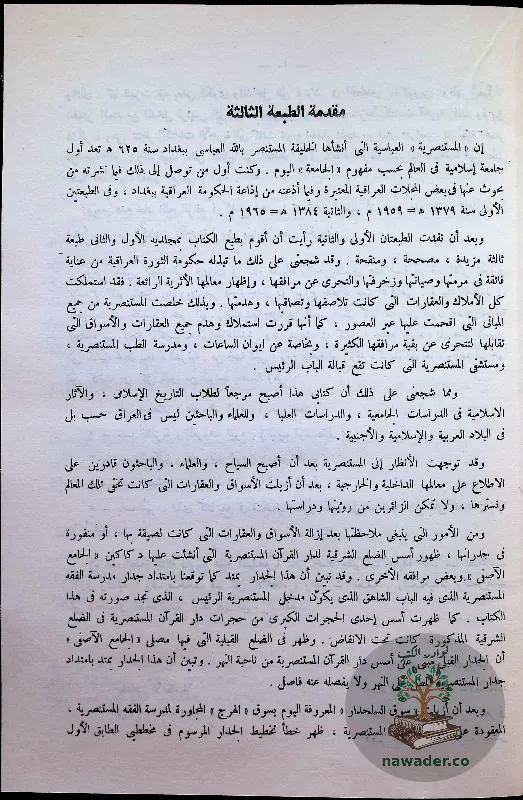 مقدمة الطبعة الثالثة
إن « المستنصرية » العباسية التى أنشأها الخليفة المستنصر بالله العباسى ببغداد سنة ٦٢٥ ه تعد أول
جامعة إسلامية فى العالم بحسب مفهوم « الجامعة » اليوم . وكنت أول من توصل إلى ذلك فيما نشرته من
بحوث عنها فى بعض المجلات العراقية المعتبرة وفيما أذعته من إذاعة الحكومة العراقية ببغداد ، وفى الطبعتين
الأولى سنة ١٣٧٩ ه = ١٩٥٩ م ، والثانية ١٣٨٤ ه = ١٩٦٥ م .
وبعد أن نفدت الطبعتان الأولى والثانية رأيت أن أقوم بطبع الكتاب بمجلديه الأول والثانى طبعة
ثالثة مزيدة ، مصححة ، ومنقحة . وقد شجعنى على ذلك ما تبذله حكومة الثورة العراقية من عناية
فائقة فى مرمتها وصيانتها وزخرفتها والتحرى عن مرافقها ، وإظهار معالمها الأثرية الرائعة . فقد استملكت
كل الأملاك والعقارات التى كانت تلاصقها وتصاقبها ، وهدمتها . وبذلك خلصت المستنصرية من جميع
المبانى التى اقحمت عليها عبر العصور . كما أنها قررت استملاك وهدم جميع العقارات والأسواق التى
تقابلها لتتحرى عن بقية مرافقها الكثيرة ، وبخاصة عن ايوان الساعات ، ومدرسة الطب المستنصرية ،
ومستشفى المستنصرية التى كانت تقع قبالة الباب الرئيس .
ومما شجعنى على ذلك أن كتابى هذا أصبح مرجعاً لطلاب التاريخ الإسلامى ، والآثار
الاسلامية فى الدراسات الجامعية ، والدراسات العليا ، وللعلماء والباحثين ليس فى العراق حسب بل
فى البلاد العربية والإسلامية والأجنبية .
وقد توجهت الأنظار إلى المستنصرية بعد أن أصبح السياح ، والعلماء ، والباحثون قادرين على
الاطلاع على معالمها الداخلية والخارجية ، بعد أن أزيلت الأسواق والعقارات التى كانت تخفى تلك المعالم
وتسترها ، ولا تمكن الزائرين من رؤيتها ودراستها .
ومن الأمور التى ينبغى ملاحظتها بعد إزالة الأسواق والعقارات التى كانت لصيقة بها ، أو منقورة
فى جدرانها ، ظهور أسس الضلع الشرقية لدار القرآن المستنصرية التى أنشئت عليها دكاكين « الجامع
الآصفى » وبعض مرافقه الأخرى . وقد تبين أن هذا الجدار يمتد كما توقعنا بامتداد جدار مدرسة الفقه
المستنصرية الذى فيه الباب الشاهق الذى يكوّن مدخل المستنصرية الرئيس ، الذى تجد صورته فى هذا
الكتاب . كما ظهرت أسس إحدى الحجرات الكبرى من حجرات دار القرآن المستنصرية فى الضلع
الشرقية المذكورة كانت تحت الانقاض . وظهر فى الضلع القبلية التى فيها مصلى « الجامع الآصفى »
أن الجدار القبلى مبنى على أسس دار القرآن المستنصرية من ناحية النهر . وتبين أن هذا الجدار يمتد بامتداد
جدار المستنصرية المطل على النهر ولا يفصله عنه فاصل .
وبعد أن أزيلت « سوق السلحدار » المعروفة اليوم بسوق « الهرج » المجاورة لمدرسة الفقه المستنصرية ،
المعقودة المستنصرية ، ظهر خطأ تخطيط الجدار المرسوم فى مخططى الطابق الأول
نوادر الكتب
nawader.co